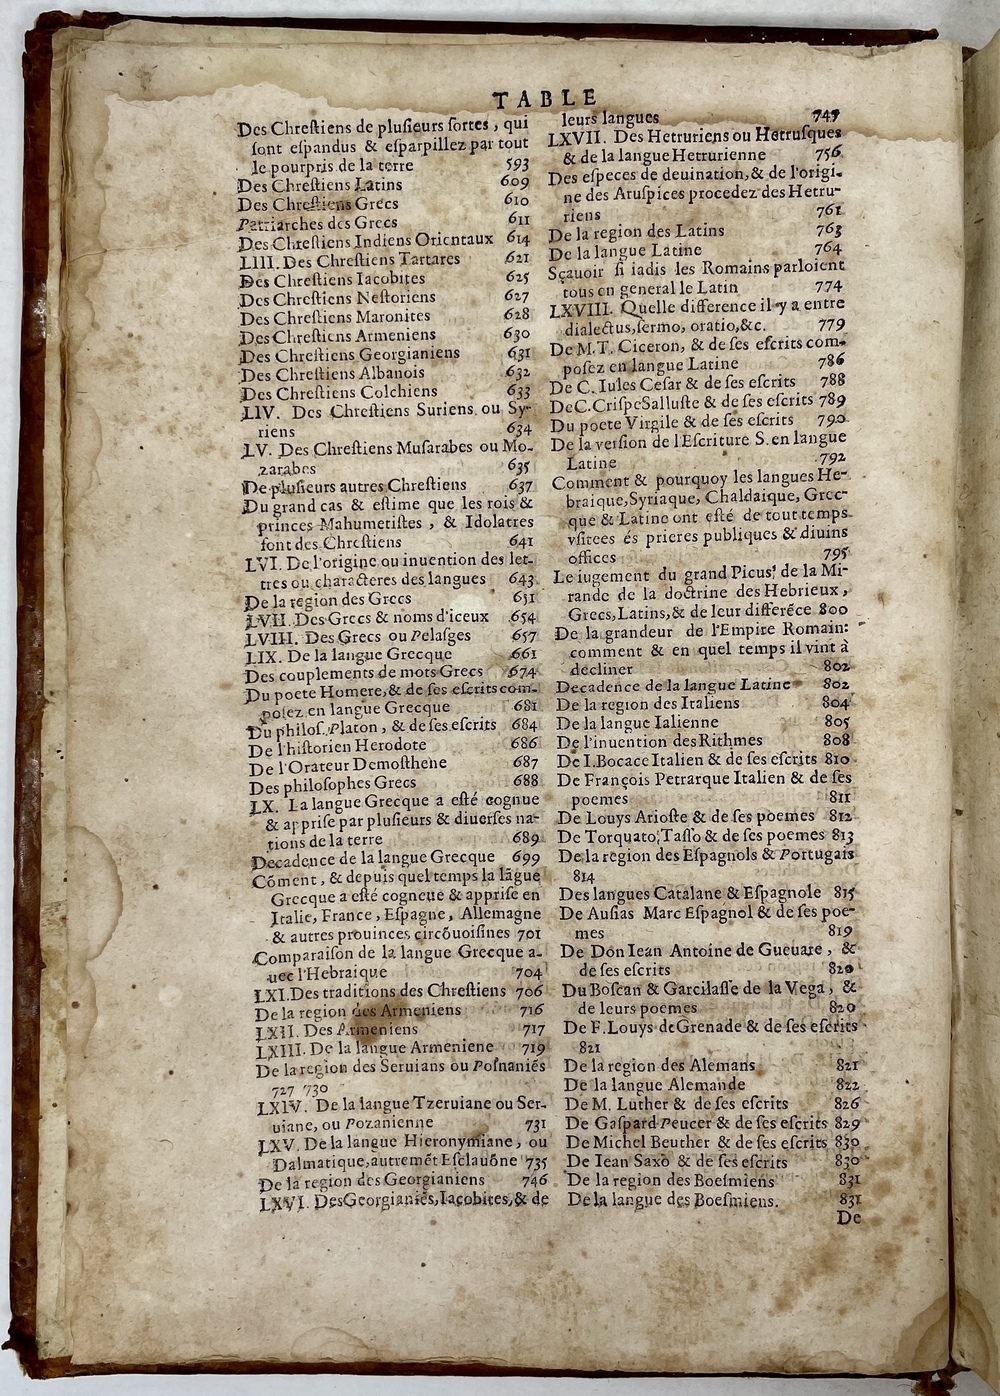 TABLE
Des Chreſtiens de pluſieurs ſortes, qui
ſont eſpandus & eſparpillez par tout
le pourpris de la terre 593
Des Chreſtiens Latins 609
Des Chreſtiens Grecs 610
Patriarches des Grecs 611
Des Chreſtiens Indiens Orientaux 614
LIII. Des Chreſtiens Tartares 621
Des Chreſtiens Iacobites 625
Des Chreſtiens Neſtoriens 627
Des Chreſtiens Maronites 628
Des Chreſtiens Armeniens 630
Des Chreſtiens Georgianiens 631
Des Chreſtiens Albanois 632
Des Chreſtiens Colchiens 633
LIV. Des Chreſtiens Suriens ou Sy-
riens 634
LV. Des Chreſtiens Muſarabes ou Mo-
zarabes 635
De pluſieurs autres Chreſtiens 637
Du grand cas & eſtime que les rois &
princes Mahumetiſtes, & Idolatres
font des Chreſtiens 641
LVI. De l'origine ou inuention des let-
tres ou characteres des langues 643
De la region des Grecs 651
LVII. Des Grecs & noms d'iceux 654
LVIII. Des Grecs ou Pelaſges 657
LIX. De la langue Grecque 661
Des couplements de mots Grecs 674
Du poete Homere, & de ſes eſcrits com-
poſez en langue Grecque 681
Du philoſ. Platon, & de ſes eſcrits 684
De l'hiſtorien Herodote 686
De l'Orateur Demoſthene 687
Des philoſophes Grecs 688
LX. La langue Grecque a eſté cognue
& appriſe par pluſieurs & diuerſes na-
tions de la terre 689
Decadence de la langue Grecque 699
Cõment, & depuis quel temps la lãgue
Grecque a eſté cogneue & appriſe en
Italie, France, Eſpagne, Allemagne
& autres prouinces circõuoiſines 701
Comparaiſon de la langue Grecque a-
uec l'Hebraique 704
LXI. Des traditions des Chreſtiens 706
De la region des Armeniens 716
LXII. Des Armeniens 717
LXIII. De la langue Armeniene 719
De la region des Seruians ou Poſnaniés
727 730
LXIV. De la langue Tzeruiane ou Ser-
uiane, ou Pozanienne 731
LXV. De la langue Hieronymiane, ou
Dalmatique, autremét Eſclauõne 735
De la region des Georgianiens 746
LXVI. Des Georgianiés, Iacobites, & de
leurs langues 747
LXVII. Des Hetruriens ou Hetruſques
& de la langue Hetrurienne 756
Des eſpeces de deuination, & de l'origi-
ne des Aruſpices procedez des Hetru-
riens 761
De la region des Latins 763
De la langue Latine 764
Sçauoir ſi iadis les Romains parloient
tous en general le Latin 774
LXVIII. Quelle difference il y a entre
dialectus, ſermo, oratio, &c. 779
De M. T. Ciceron, & de ſes eſcrits com-
poſez en langue Latine 786
De C. Iules Ceſar & de ſes eſcrits 788
De C. Criſpe Salluſte & de ſes eſcrits 789
Du poete Virgile & de ſes eſcrits 790
De la verſion de l'Eſcriture S. en langue
Latine 792
Comment & pourquoy les langues He-
braique, Syriaque, Chaldaique, Grec-
que & Latine ont eſté de tout temps
vſitees és prieres publiques & diuins
offices 795
Le iugement du grand Picus, de la Mi-
rande de la doctrine des Hebrieux,
Grecs, Latins, & de leur differéce 800
De la grandeur de l'Empire Romain:
comment & en quel temps il vint à
decliner 802
Decadence de la langue Latine 802
De la region des Italiens 804
De la langue Ialienne 805
De l'inuention des Rithmes 808
De I. Bocace Italien & de ſes eſcrits 810
De François Petrarque Italien & de ſes
poemes 811
De Louys Arioſte & de ſes poemes 812
De Torquato Taſſo & de ſes poemes 813
De la region des Eſpagnols & Portugais
814
Des langues Catalane & Eſpagnole 815
De Auſias Marc Eſpagnol & de ſes poe-
mes 819
De Don Iean Antoine de Gueuare, &
de ſes eſcrits 820
Du Boſcan & Garcilaſſe de la Vega, &
de leurs poemes 820
De F. Louys de Grenade & de ſes eſcrits
821
De la region des Alemans 821
De la langue Alemande 822
De M. Luther & de ſes eſcrits 826
De Gaſpard Peucer & de ſes eſcrits 829
De Michel Beuther & de ſes eſcrits 830
De Iean Saxo & de ſes eſcrits 830
De la region des Boeſmiens 831
De la langue des Boeſmiens. 831
De